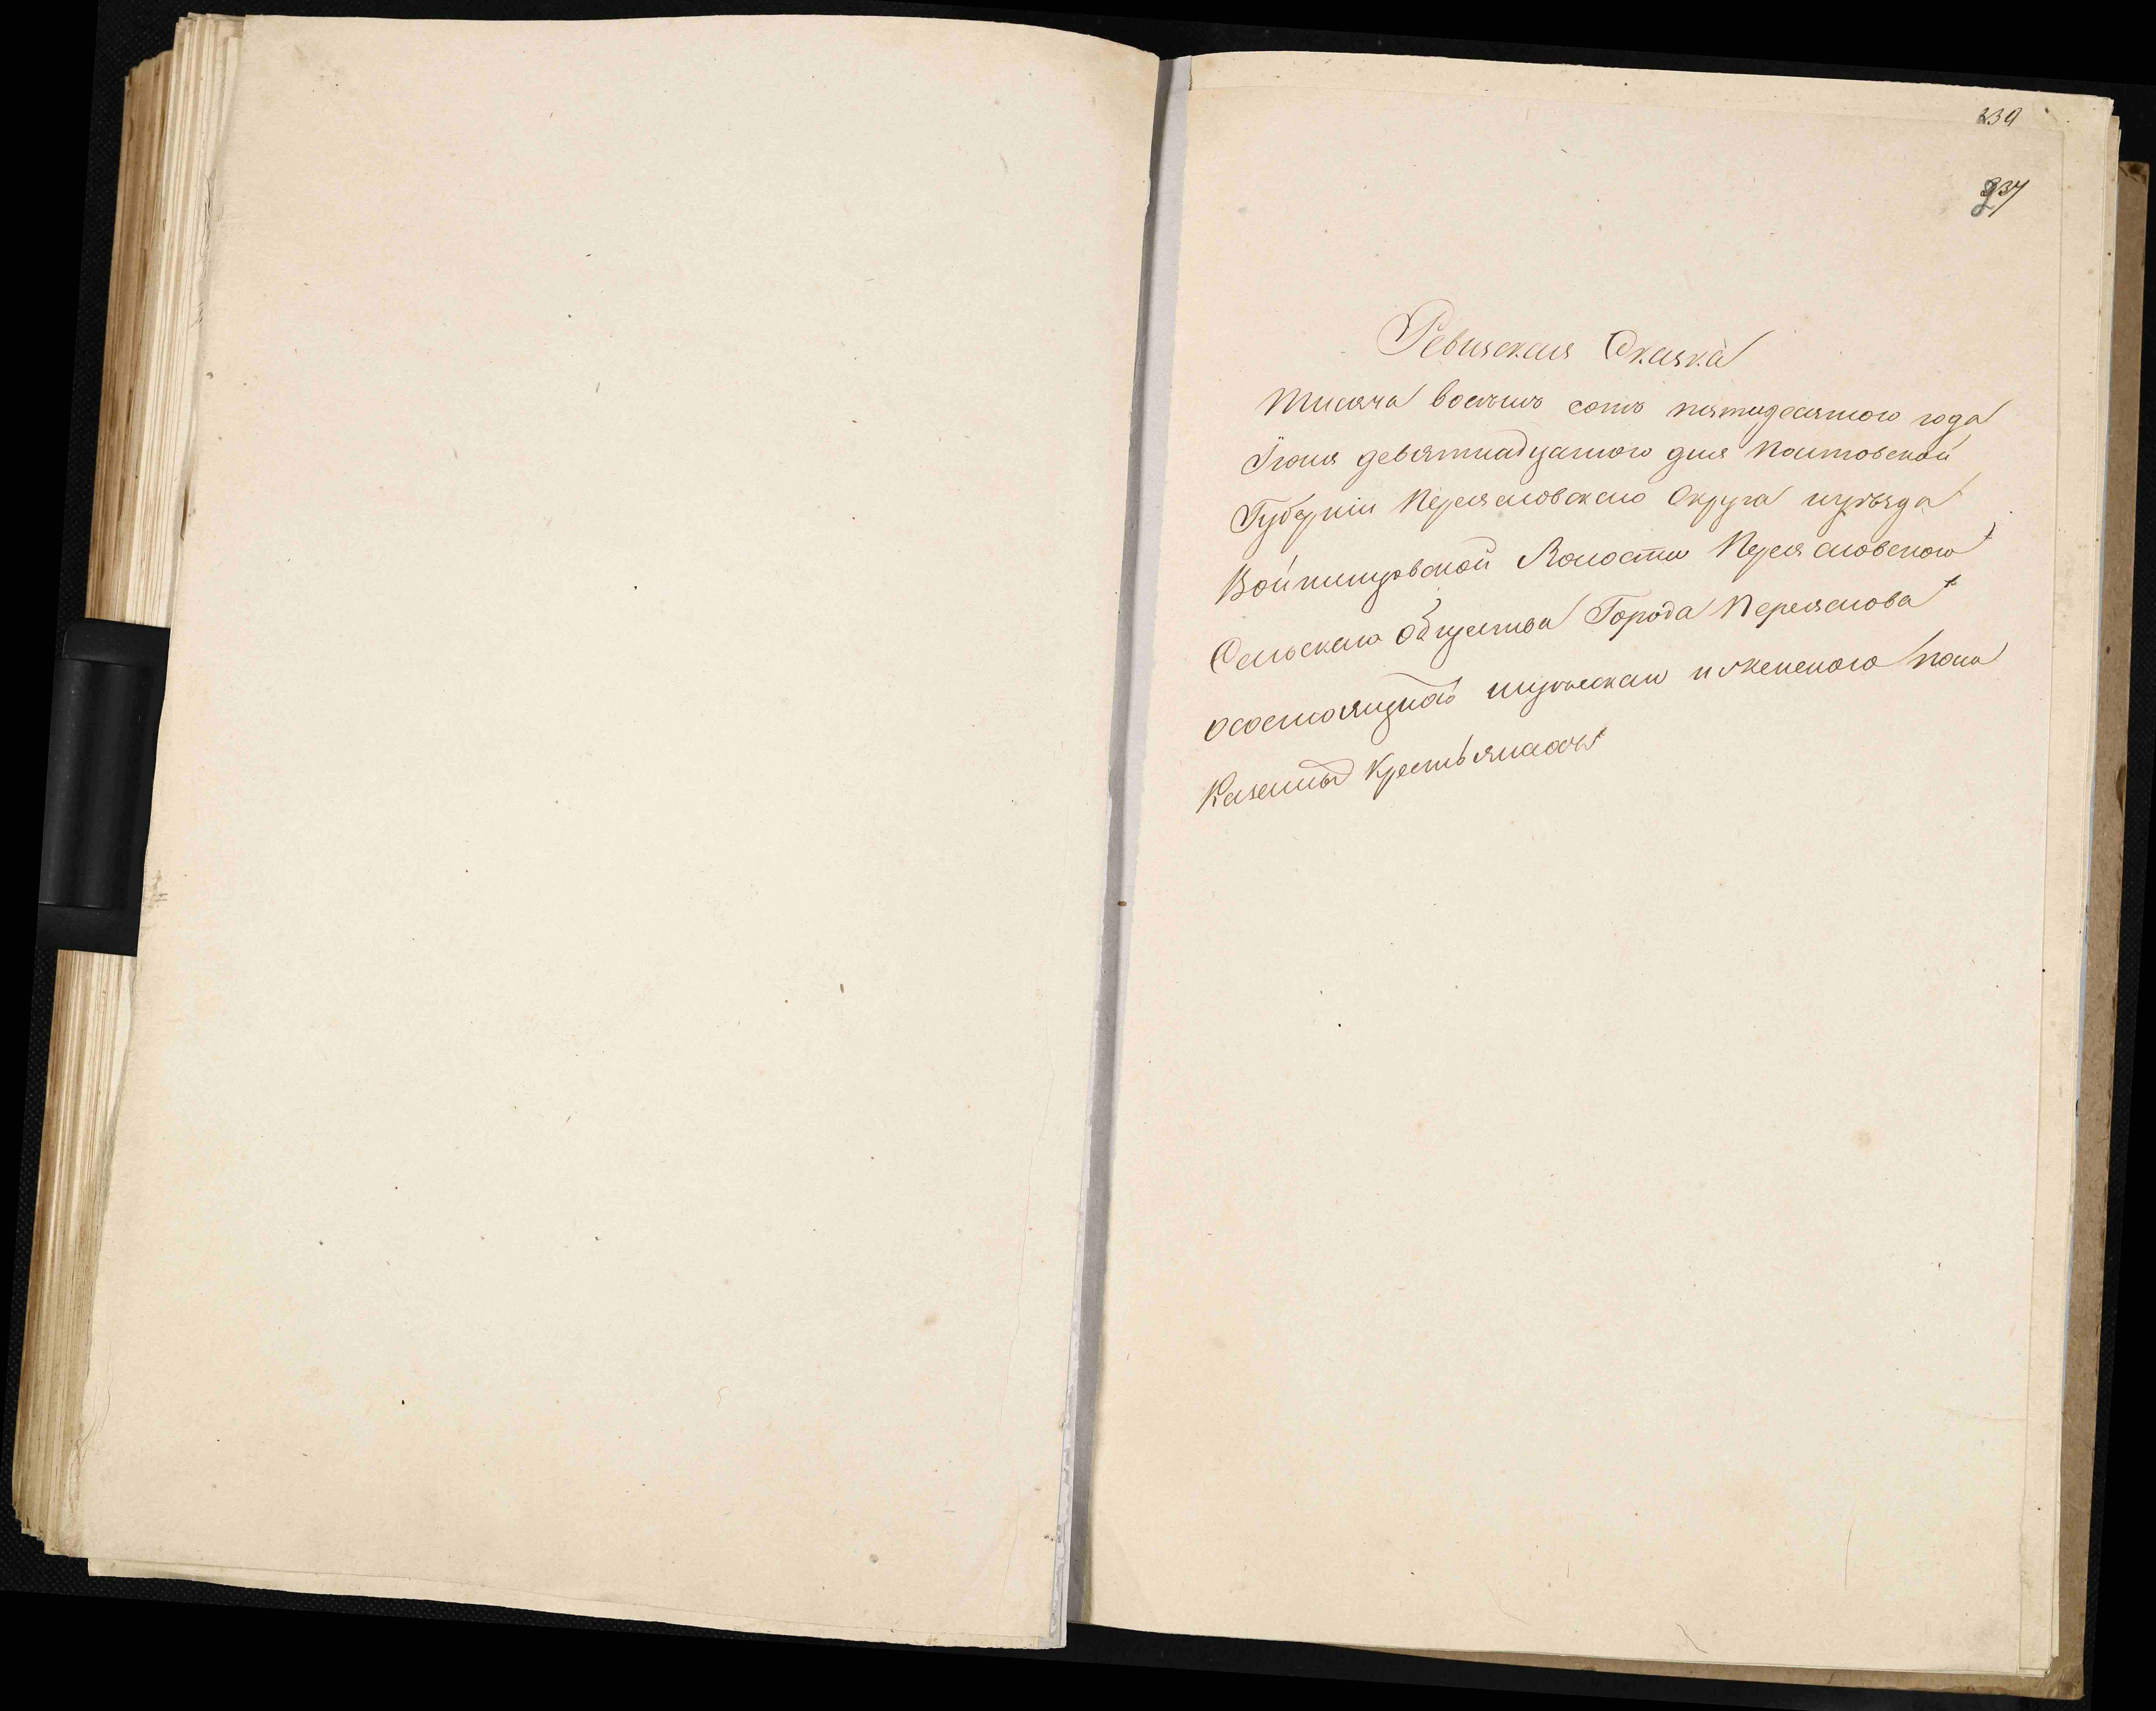 339
237
Ревизская Сказка
Тисяча восемь сотъ пятидесятого года
Іюня девятнадцатого дня Полтовской
Губерніи Переясловского Округа иуѣзда
Войтинцовской Волости Переясловского
Сельского Общества Города Переяслова
осостоящихъ мужескаго иженского пола
Казенныхъ Крестьянахъ